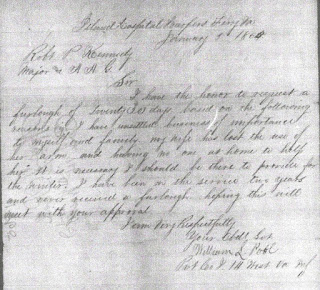 Island Hospital Harpers Ferry Va
January 7th 1864
Robt P. Kennedy
Major & A A G
Sir
I have the honor to request a
furlough of Twenty (20) days based on the following
reasons I have unsettled business of importance
to myself and family my wife has lost the use of
her arm and having no one at home to help
her it is necessary I should be there to provide for
the winter. I have been in the service two years
and never received a furlough hoping this will
meet with your approval
I am Very Respectfully
Your Obdt Svt
William L
Co I 1st West Va Inf